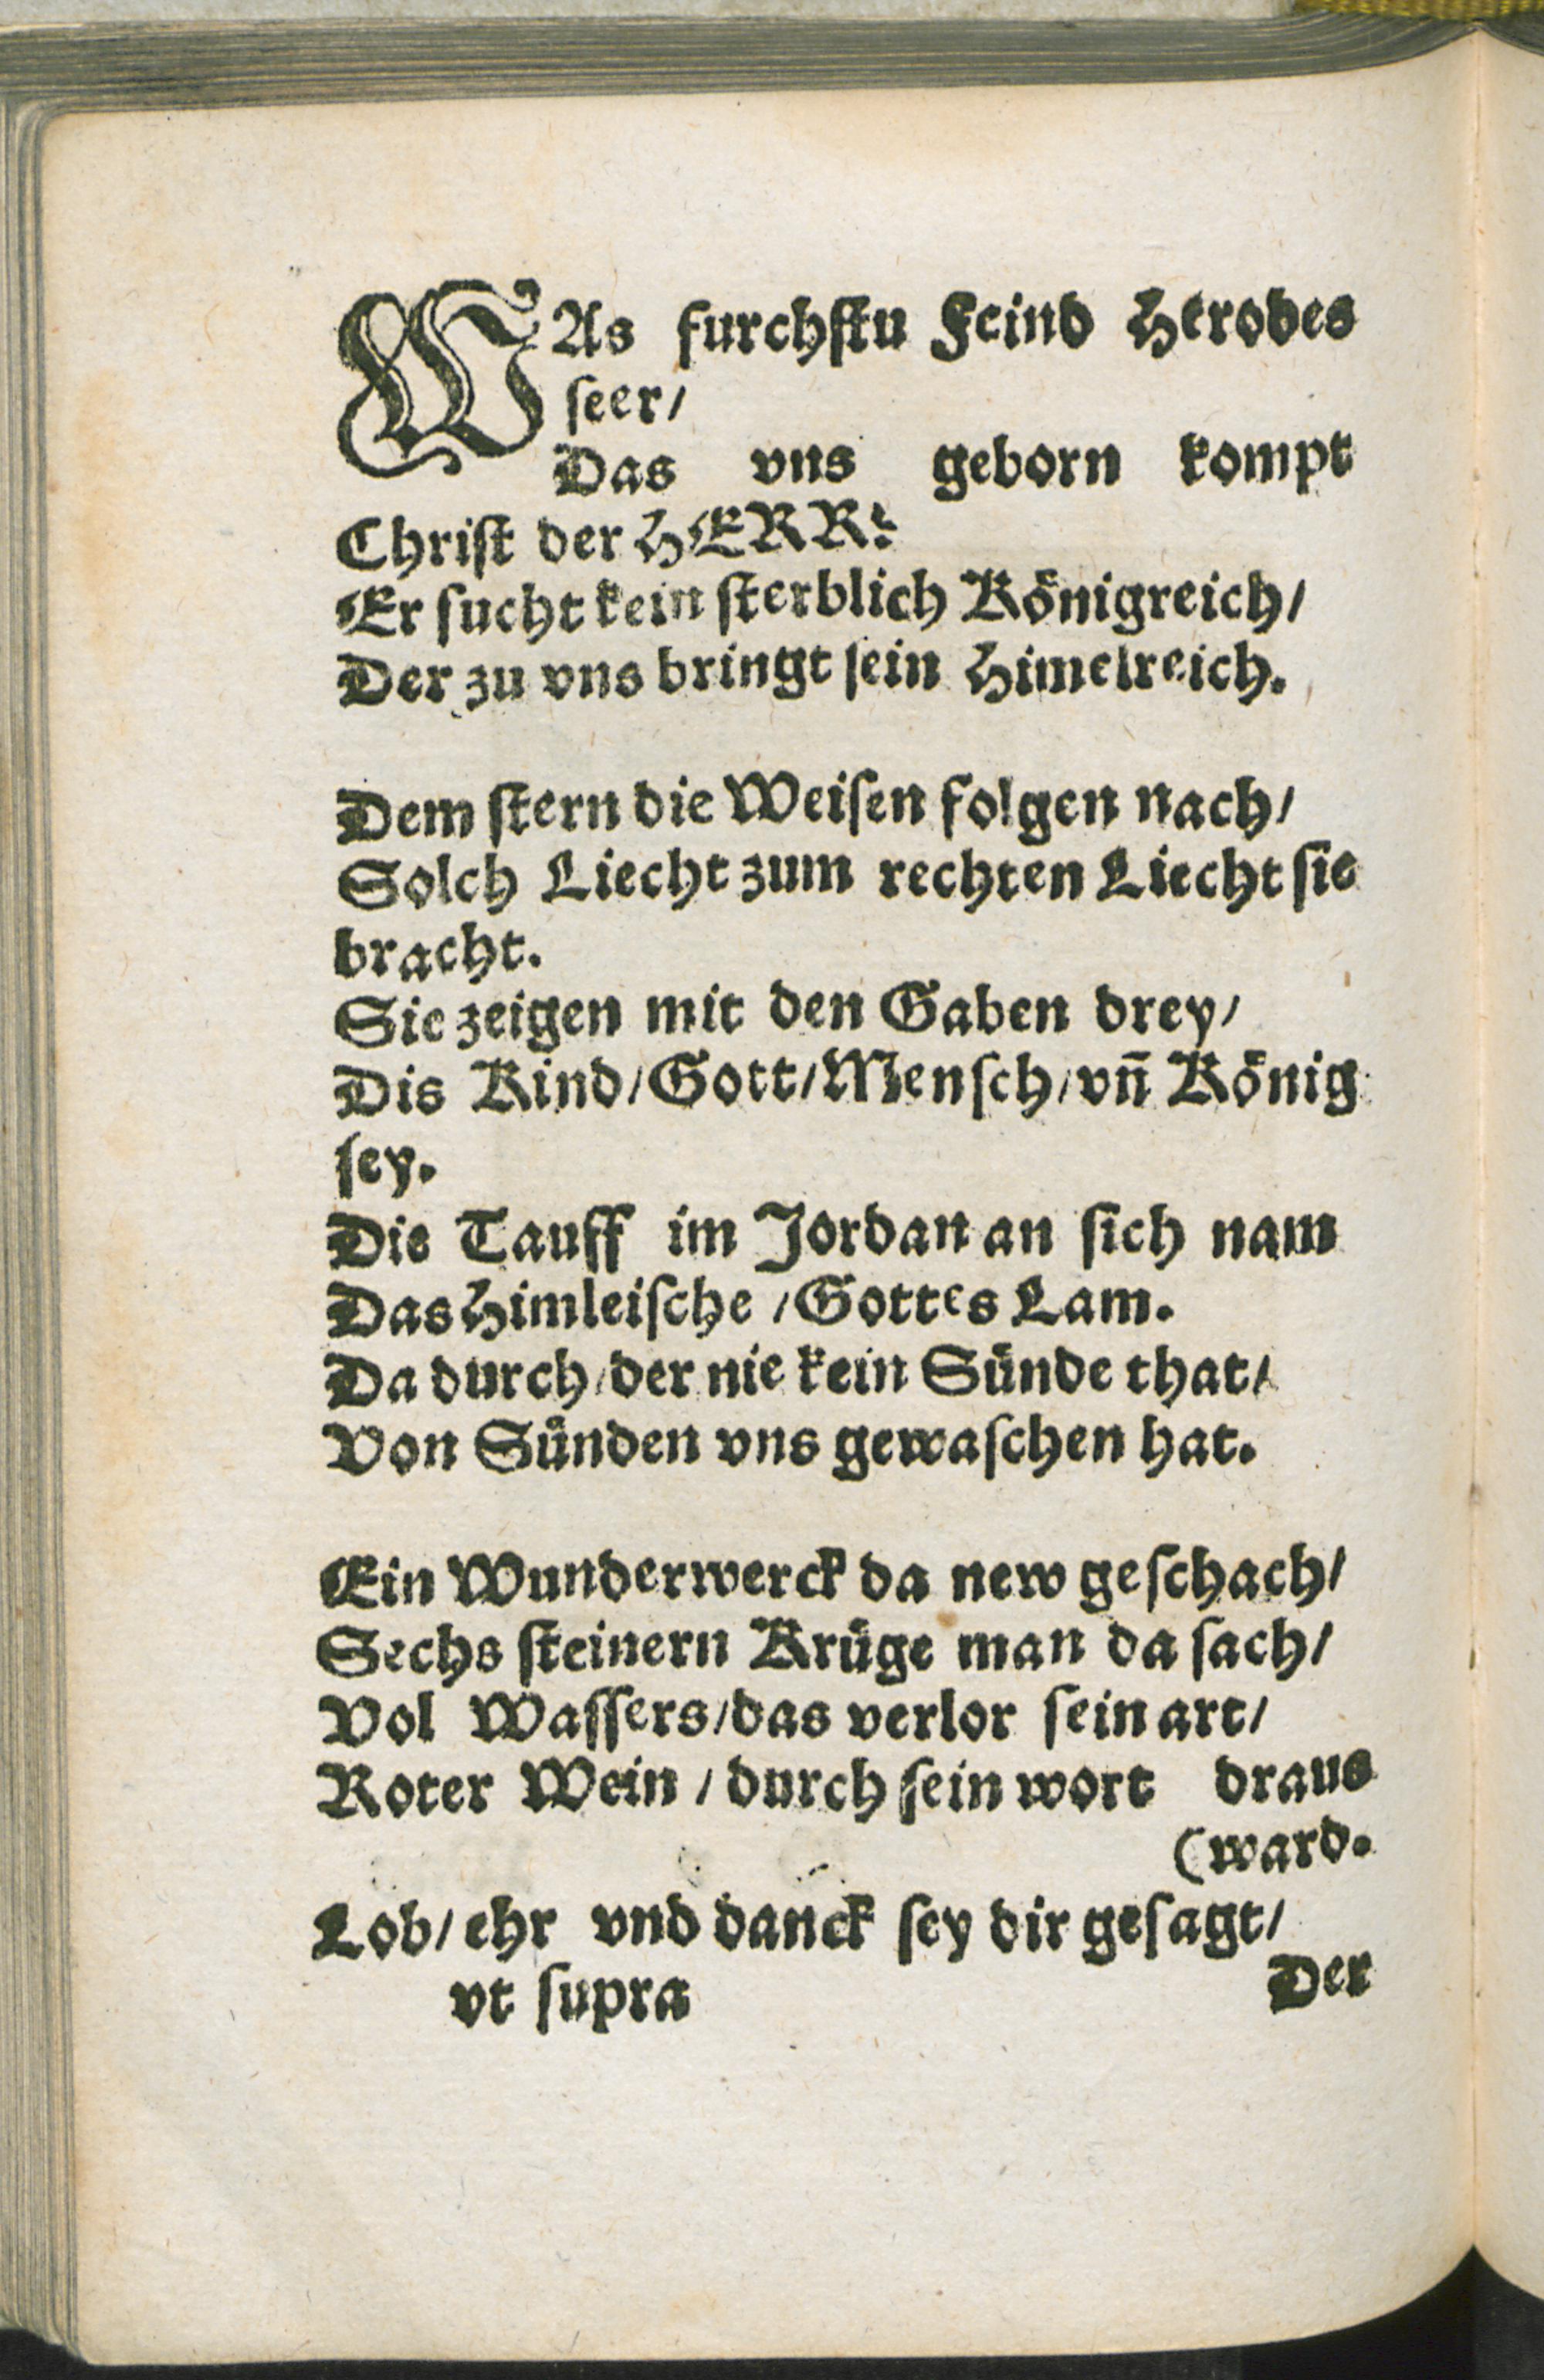 WAs furchſtu Feind Herodes
ſeer/
Das vns geborn kompt
Chriſt der HERR?
Er ſucht kein ſterblich Königreich/
Der zu vns bringt ſein Himelreich.
Dem ſtern die Weiſen folgen nach/
Solch Liecht zum rechten Liecht ſie
bracht.
Sie zeigen mit den Gaben drey/
Dis Kind/Gott/Menſch/vn̄ König
ſey.
Die Tauff im Jordan an ſich nam
Das Himleiſche /Gottes Lam.
Da durch/der nie kein Sünde that/
Von Sünden vns gewaſchen hat.
Ein Wunderwerck da new geſchach/
Sechs ſteinern Krüge man da ſach/
Vol Waſſers/das verlor ſein art/
Roter Wein / durch ſein wort draus
(ward.
Lob/ ehr vnd danck ſey dir geſagt/
vt ſupra Der